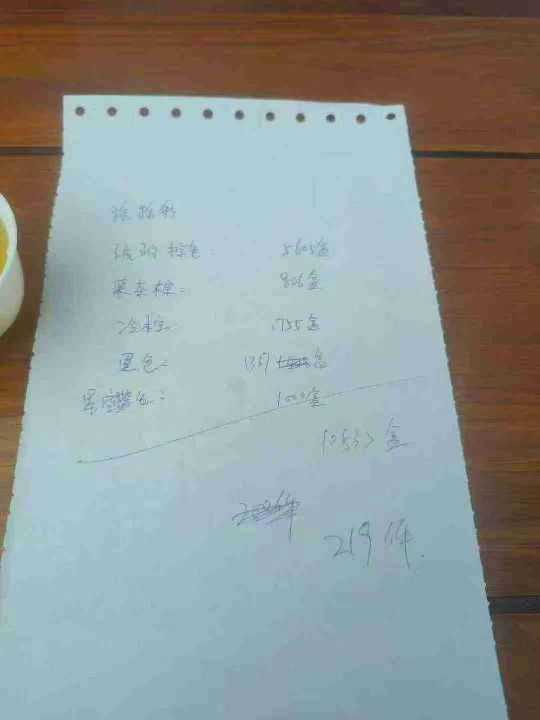 琥珀棕色: 5605盒
茶棕: 806盒
冷棕: 1755盒
黑色: 1367 盒
星空蓝色: 1000盒
10533盒
219件